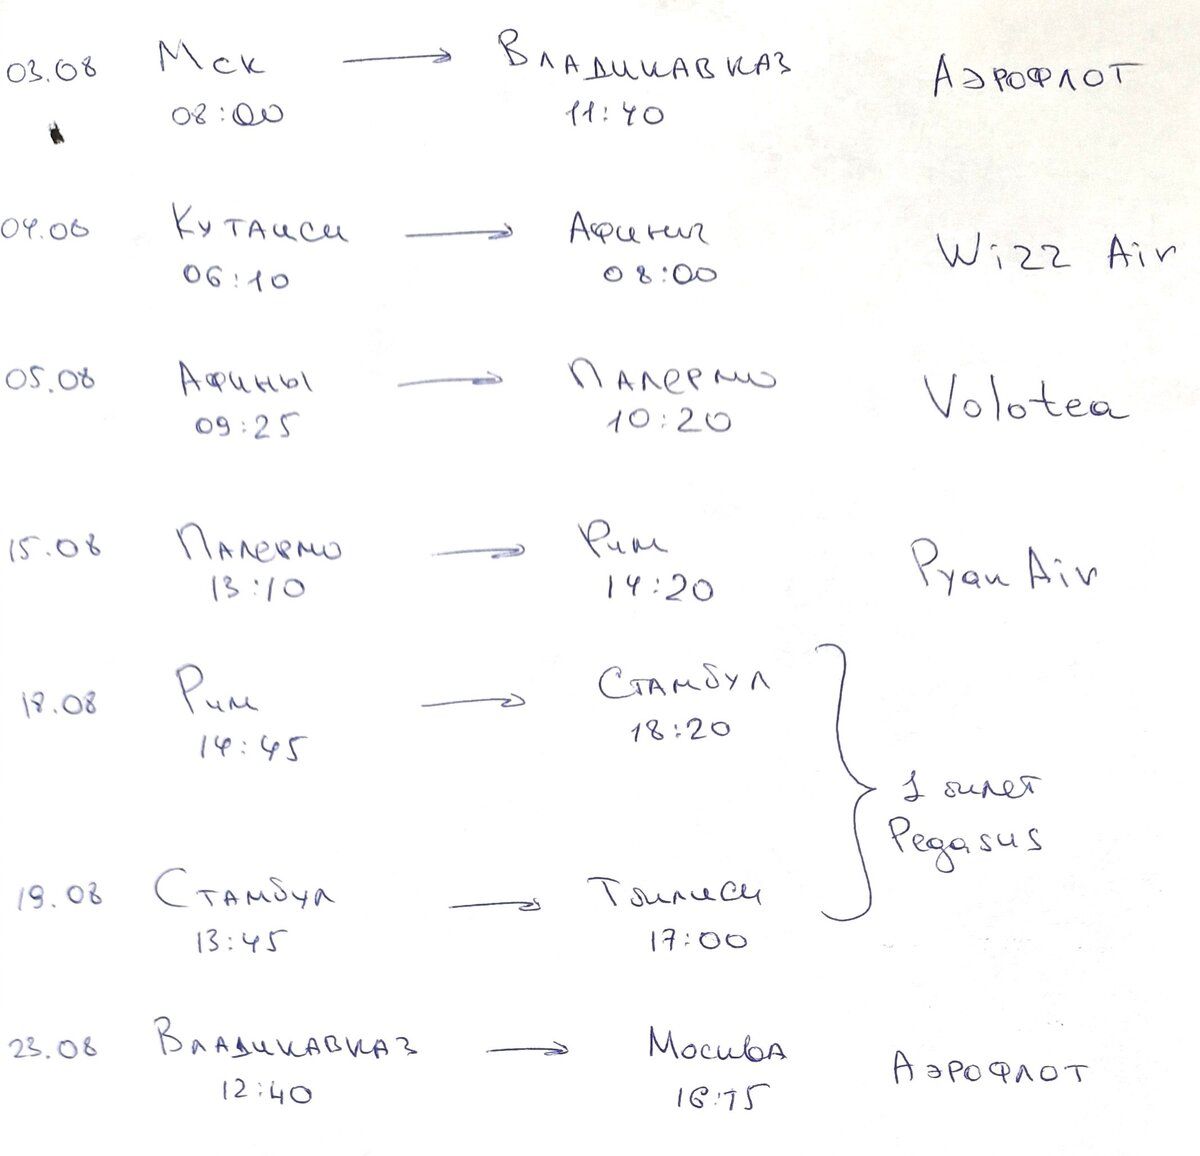 03.08 Мск → Владикавказ Аэрофлот
08:00 11:40
04.08 Кутаиси → Афины Wizz Air
06:10 08:00
05.08 Афины → Палермо Volotea
09:25 10:20
15.08 Палермо → Рим Ryan Air
13:10 14:20
18.08 Рим → Стамбул
14:45 18:20
1 билет
Pegasus
19.08 Стамбул → Тбилиси
13:45 17:00
23.08 Владикавказ → Москва Аэрофлот
12:40 16:15